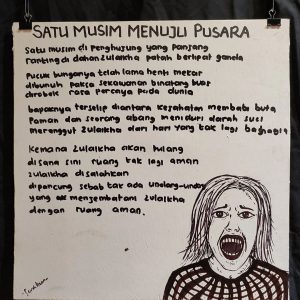 SATU MUSIM MENUJU PUSARA
Satu musim di penghujung yang panjang
ranting di dahan Zulaikha patah berlipat ganda
Pucuk bunganya telah lama henti mekar
dibunuh paksa sekawanan binatang buas
dirobek rasa percaya pada dunia
bapaknya terselip diantara kejahatan membabi buta
Paman dan seorang abang meniduri darah suci
Merenggut Zulaikha dari hari yang tak lagi bahagia
Kemana Zulaikha akan pulang
disana sini ruang tak lagi aman
Zulaikha disalahkan
dipancung sebab tak ada undang-undang
yang akan menjembatani Zulaikha
dengan ruang aman.